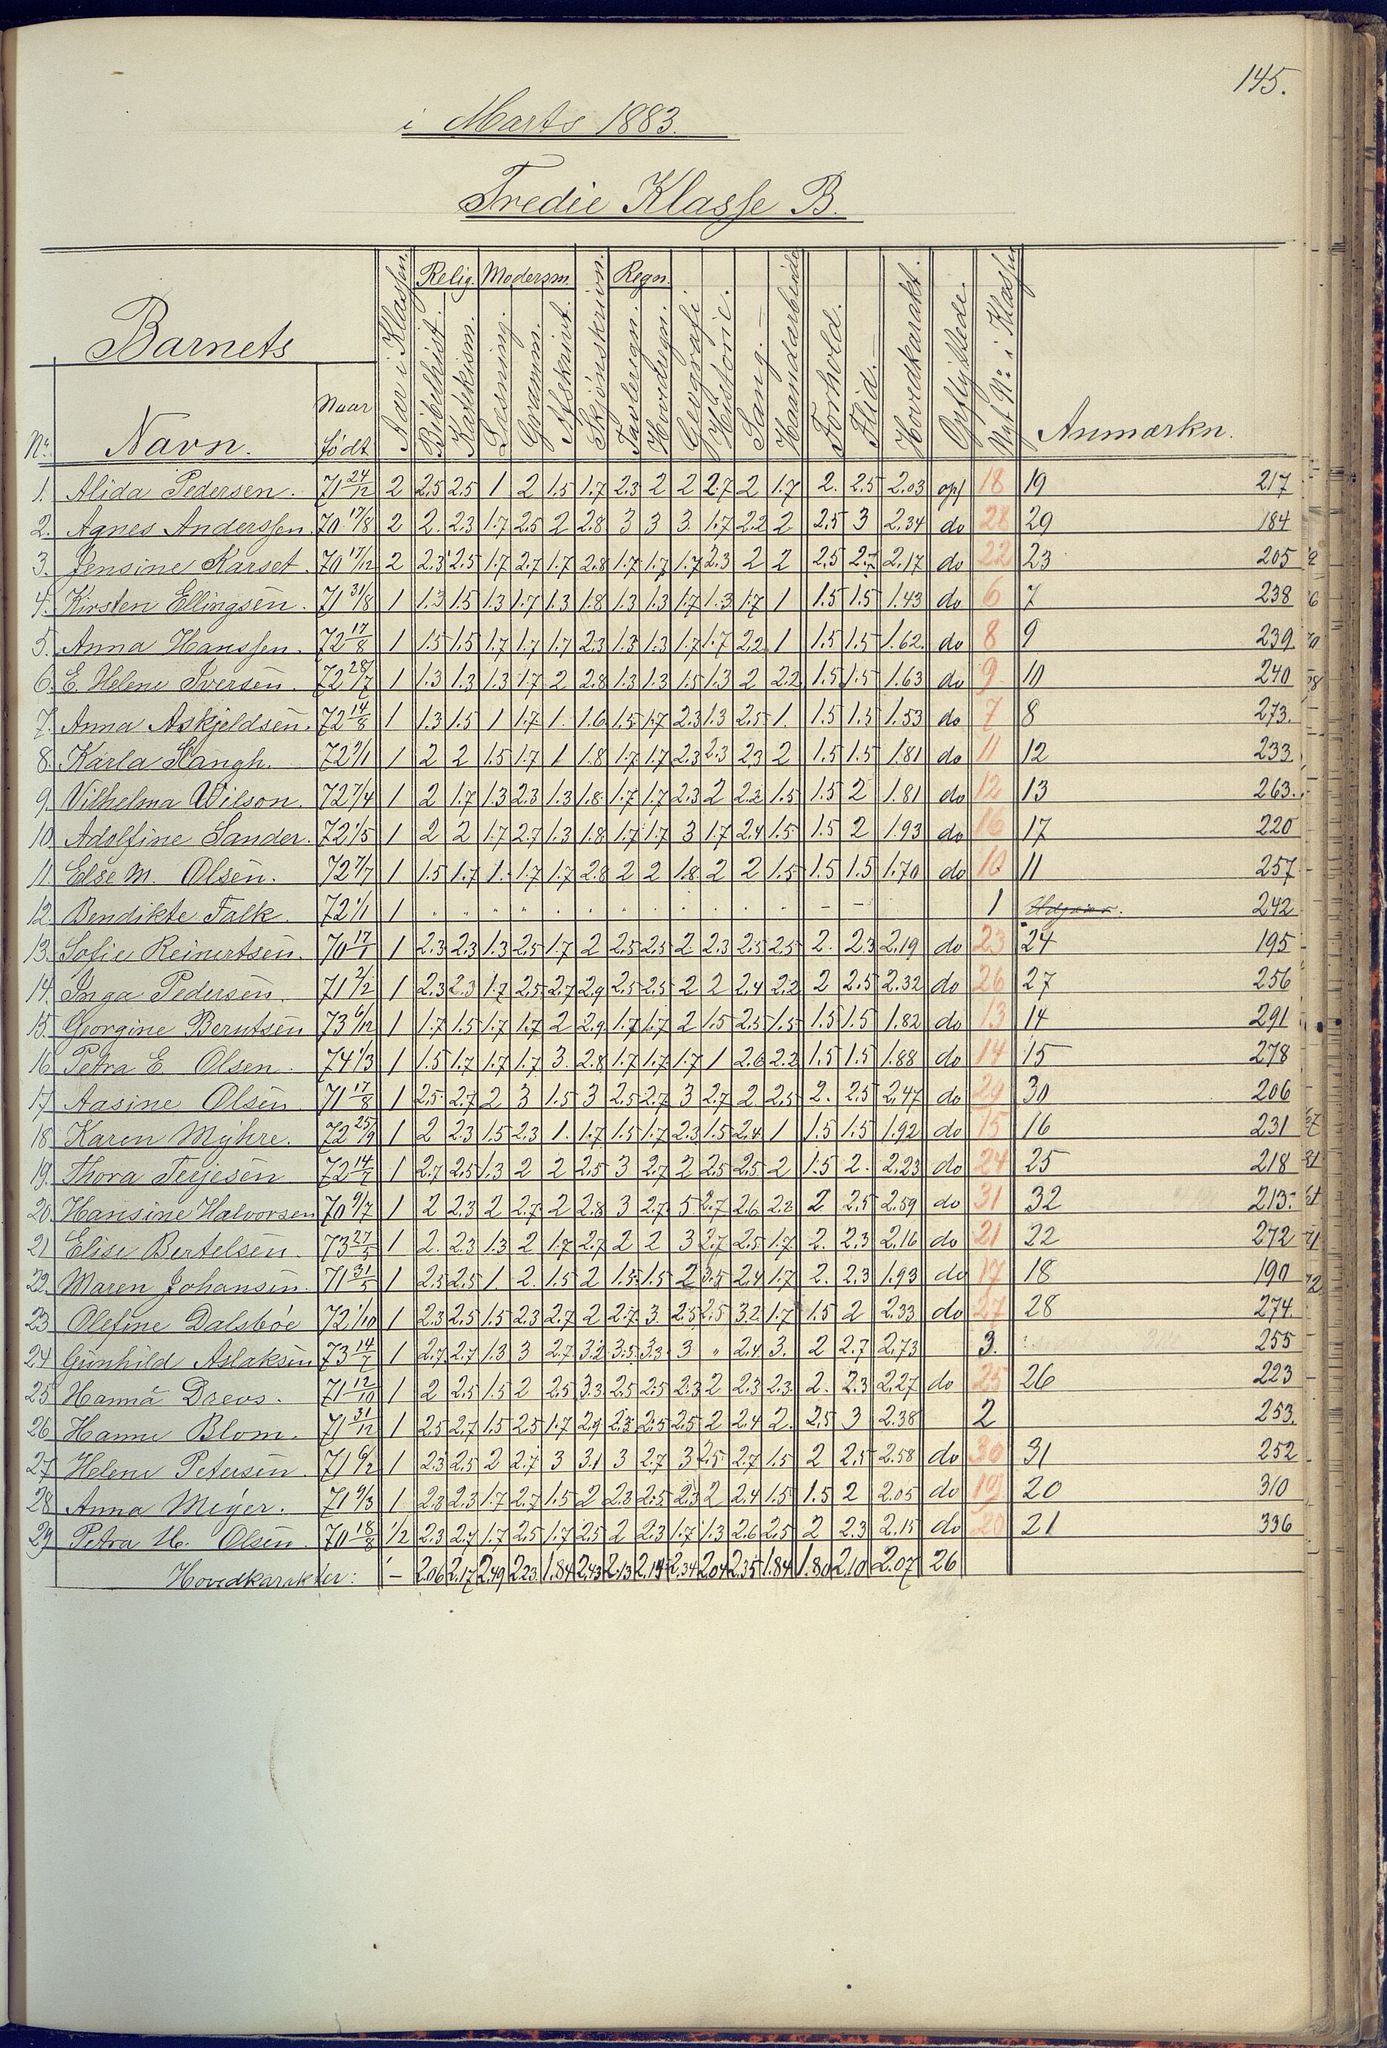 145.
i Marts 1883.
Tredie Klasse B.
Barnets
No. Navn. Naar født Aar i Klassen. Relig. Bibelhist. Katekism. Modersm. Læsning. Gramm. Afskrivt. Skjönskrivn. Regn. Tavleregn. Hovedregn. Geografi Historie. Sang. Haandarbeide Forhold. Flid. Hovedkarakt. Opflyttede. Nyt No. i Klassen Anmærkn.
1. Alida Pedersen. 71 24/12 2 2.5 2.5 1 2 1.5 1.7 2.3 2 2 2.7 2 1.7 2. 2.5 2.03 opf 18 19 217
2. Agnes Anderssen. 70 17/8 2 2. 2.3 1.7 2.5 2 2.8 3 3 3. 1.7 2.2 2 2.5 3 2.34 do 28 29 184
3. Jensine Karset. 70 17/12 2 2.3 2.5 1.7 2.7 1.7 2.8 1.7 1.7 1.7 2.3 2 2 2.5 2.7 2.17 do 22 23 205
4. Kirsten Ellingsen. 71 31/8 1 1.3 1.5 1.3 1.7 1.3 1.8 1.3 1.3 1.7 1.3 1.7 1 1.5 1.5 1.43 do 6 7 238
5. Anna Hanssen. 72 17/8 1 1.5 1.5 1.7 1.7 1.7 2.3 1.3 1.3 1.7 1.7 2.2 1 1.5 1.5 1.62. do 8 9 239
6. E. Helene Iversen. 72 28/7 1 1.3 1.3 1.3 1.7 2 2.8 1.3 1.3 1.5 1.3 2 2.2 1.5 1.5 1.63 do 9. 10 240
7. Anna Askjeldsen. 72 14/8 1 1.3 1.5 1 1.7 1. 1.6 1.5 1.7 2.3 1.3 2.5 1. 1.5 1.5 1.53 do 7 8 273.
8. Karla Stangh. 72 9/1 1 2 2 1.5 1.7 1 1.8 1.7 1.7 2.3 2.3 2.3 2 1.5 1.5 1.81 do 11 12 233
9. Vilhelma Wilson. 72 7/4 1 2 1.7 1.3 2.3 1.3 1.8 1.7 1.7 2.3 2 2.2 1.5 1.5 2 1.81 do 12 13 263.
10. Adolfine Sander. 72 1/5 1 2 2 1.7 2.7 1.3 1.8 1.7 1.7 3 1.7 2.4 1.5 1.5 2 1.93 do 16 17 220
11. Else M. Olsen. 72 7/7 1 1.5 1.7 1. 1.7 1.7 2.8 2 2 1.8 2 2 1.5 1.5 1.5 1.70 do 10 11 257
12. Bendikte Falk. 72 1/1 1 1 242
13. Sofie Reinertsen. 70 17/1 1 2.3 2.3 1.3 2.5 1.7 2 2.5 2.5 2. 2.3 2.5 2.5 2. 2.3 2.19 do 23 24 195
14. Inga Pedersen. 71 2/2 1 2.3 2.3 1.7 2.5 2.7 2.9 2.5 2.5 2 2 2.4 2.2 2 2.5 2.32 do 26 27 256
15. Georgine Berntsen 73 6/12 1 1.7 1.5 1.7 1.7 2 2.9 1.7 1.7 2 1.5 2.5 1.5 1.5 1.5 1.82 do 13 14 291
16. Petra E. Olsen. 74 1/3 1 1.5 1.7 1.7 1.7 3. 2.8 1.7 1.7 1.7 1 2.6 2.2 1.5 1.5 1.88 do 14 15 278
17. Aasine Olsen. 71 17/8 1 2.5 2.7 2 3 1.5 3 2.5 2.7 3 2.7 2 2.5 2. 2.5 2.47 do 29 30 206
18. Karen Myhre. 72 25/9 1 2 2.3 1.5 2.3 1. 1.7 1.5 1.7 2.3 1.5 2.4 1 1.5 1.5 1.92 do 15 16 231
19. Thora Terjesen 72 14/7 1 2.7 2.5 1.3 2 2 2.5 3 2.7 2 2.5 2.5 2 1.5 2. 2.23 do 24 25 218
20. Hansine Halvorsen 70 9/7 1 2 2.3 2 2.7 2 2.8 3 2.7 5 2.7 2.6 2.2 2 2.5 2.59 do 31 32 213.
21 Elise Bertelsen. 73 27/5 1 2. 2.3 1.3 2 1.7 2.7 2 2 3 2.7 2.5 1.7 2. 2.3 2.16 do 21 22 272
22. Maren Johansen. 71 31/5 1 2.5 2.5 1. 2. 1.5 2 1.5 1.5 2 3.5 2.4 1.7 2. 2.3 1.93 do 17 18 190
23 Olefine Dalsböe 72 1/10 1 2.3 2.5 1.5 2.3 2.7 2 2.7 3. 2.5 2.5 3.2 1.7 1.5 2 2.33 do 27 28 274
24 Gunhild Aslaksen 73 14/7 1 2.7 2.7 1.3 3 2.7 3.2 3.5 3.3 3 " 2.4 3. 2 2.7 2.73 3. 255
25 Hanna Drevs. 71 12/10 1 2 2.5 1.5 2 2.5 3.3 2.5 2.5 2.3 2 2.3 2.3 2. 2.3 2.27 do 25 26 223
26 Hanne Blom. 71 31/12 1 2.5 2.7 1.5 2.5 1.7 2.9 2.3 2.5 2.5 2 2.4 2. 2.5 3 2.38 2 253
27 Helene Petersen. 71 6/2 1 2.3 2.5 2 2.7 3 3.1 3 2.7 3 2.5 2.7 1.5 2 2.5 2.58 do 30 31 252
28 Anna Meÿer. 71 9/3 1 2.3 2.3 1.7 2.7 1.5 2 2.3 2.5 2.3 2 2.4 1.5 1.5 2 2.05 do 19 20 310
29 Petra M. Olsen. 70 18/8 1/2 2.3 2.7 1.7 2.5 1.7 2.5 2 2.3 1.7 1.3 2.6 2.5 2 2.3 2.15 do 20 21 336
Hovedkarakter: – 2.06 2.17 2.49 2.23 1.84 2.43 2.13 2.14 2.34 2.04 2.35 1.84 1.80 2.10 2.07 26